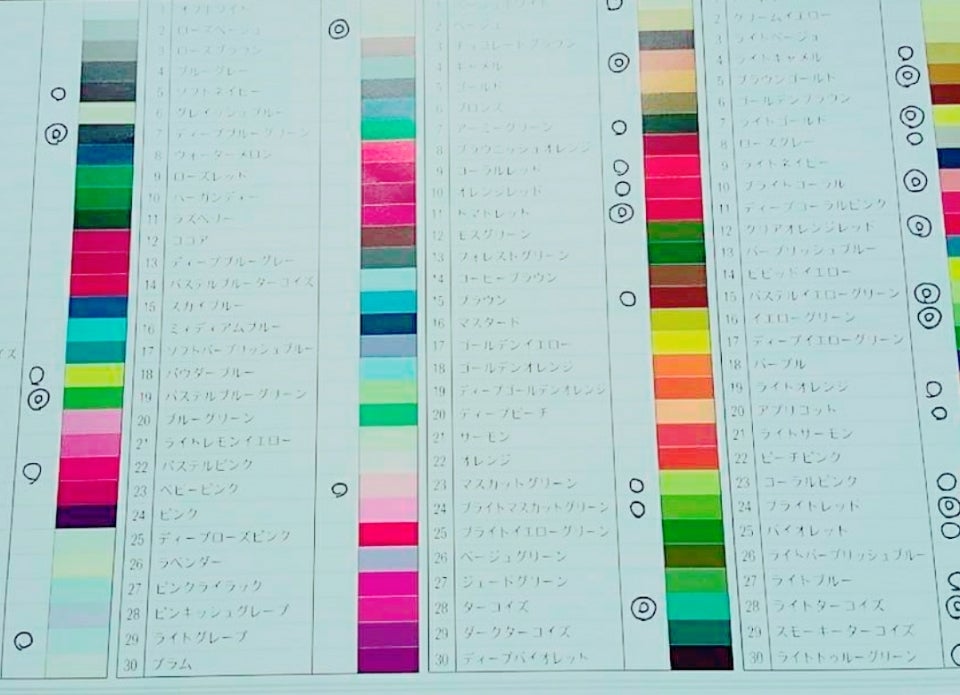 イズ
1 オフホワイト
2 ローズベージュ
3 ローズブラウン
4 ブルーグレー
5 ソフトネイビー
6 グレイッシュブルー
7 ディープブルーグリーン
8 ウォーターメロン
9 ローズレッド
10 バーガンディー
11 ラズベリー
12 ココア
13 ディープブルーグレー
14 パステルブルーターコイズ
15 スカイブルー
16 ミィディアムブルー
17 ソフトパープリッシュブルー
18 パウダーブルー
19 パステルブルーグリーン
20 ブルーグリーン
21 ライトレモンイエロー
22 パステルピンク
23 ベビーピンク
24 ピンク
25 ディープローズピンク
26 ラベンダー
27 ピンクライラック
28 ピンキッシュグレープ
29 ライトグレープ
30 プラム
2 ベージュ
3 チョコレートブラウン
4 キャメル
5 ゴールド
6 ブロンズ
7 アーミーグリーン
8 ブラウニッシュオレンジ
9 コーラルレッド
10 オレンジレッド
11 トマトレッド
12 モスグリーン
13 フォレストグリーン
14 コーヒーブラウン
15 ブラウン
16 マスタード
17 ゴールデンイエロー
18 ゴールデンオレンジ
19 ディープゴールデンオレンジ
20 ディープピーチ
21 サーモン
22 オレンジ
23 マスカットグリーン
24 ブライトマスカットグリーン
25 ブライトイエローグリーン
26 ベージュグリーン
27 ジェードグリーン
28 ターコイズ
29 ダークターコイズ
30 ディープバイオレット
2 クリームイエロー
3 ライトベージュ
4 ライトキャメル
5 ブラウンゴールド
6 ゴールデンブラウン
7 ライトゴールド
8 ローズグレー
9 ライトネイビー
10 ブライトコーラル
11 ディープコーラルピンク
12 クリアオレンジレッド
13 パープリッシュブルー
14 ビビッドイエロー
15 パステルイエローグリーン
16 イエローグリーン
17 ディープイエローグリーン
18 パープル
19 ライトオレンジ
20 アプリコット
21 ライトサーモン
22 ピーチピンク
23 コーラルピンク
24 ブライトレッド
25 バイオレット
26 ライトパープリッシュブルー
27 ライトブルー
28 ライトターコイズ
29 スモーキーターコイズ
30 ライトトゥルーグリーン